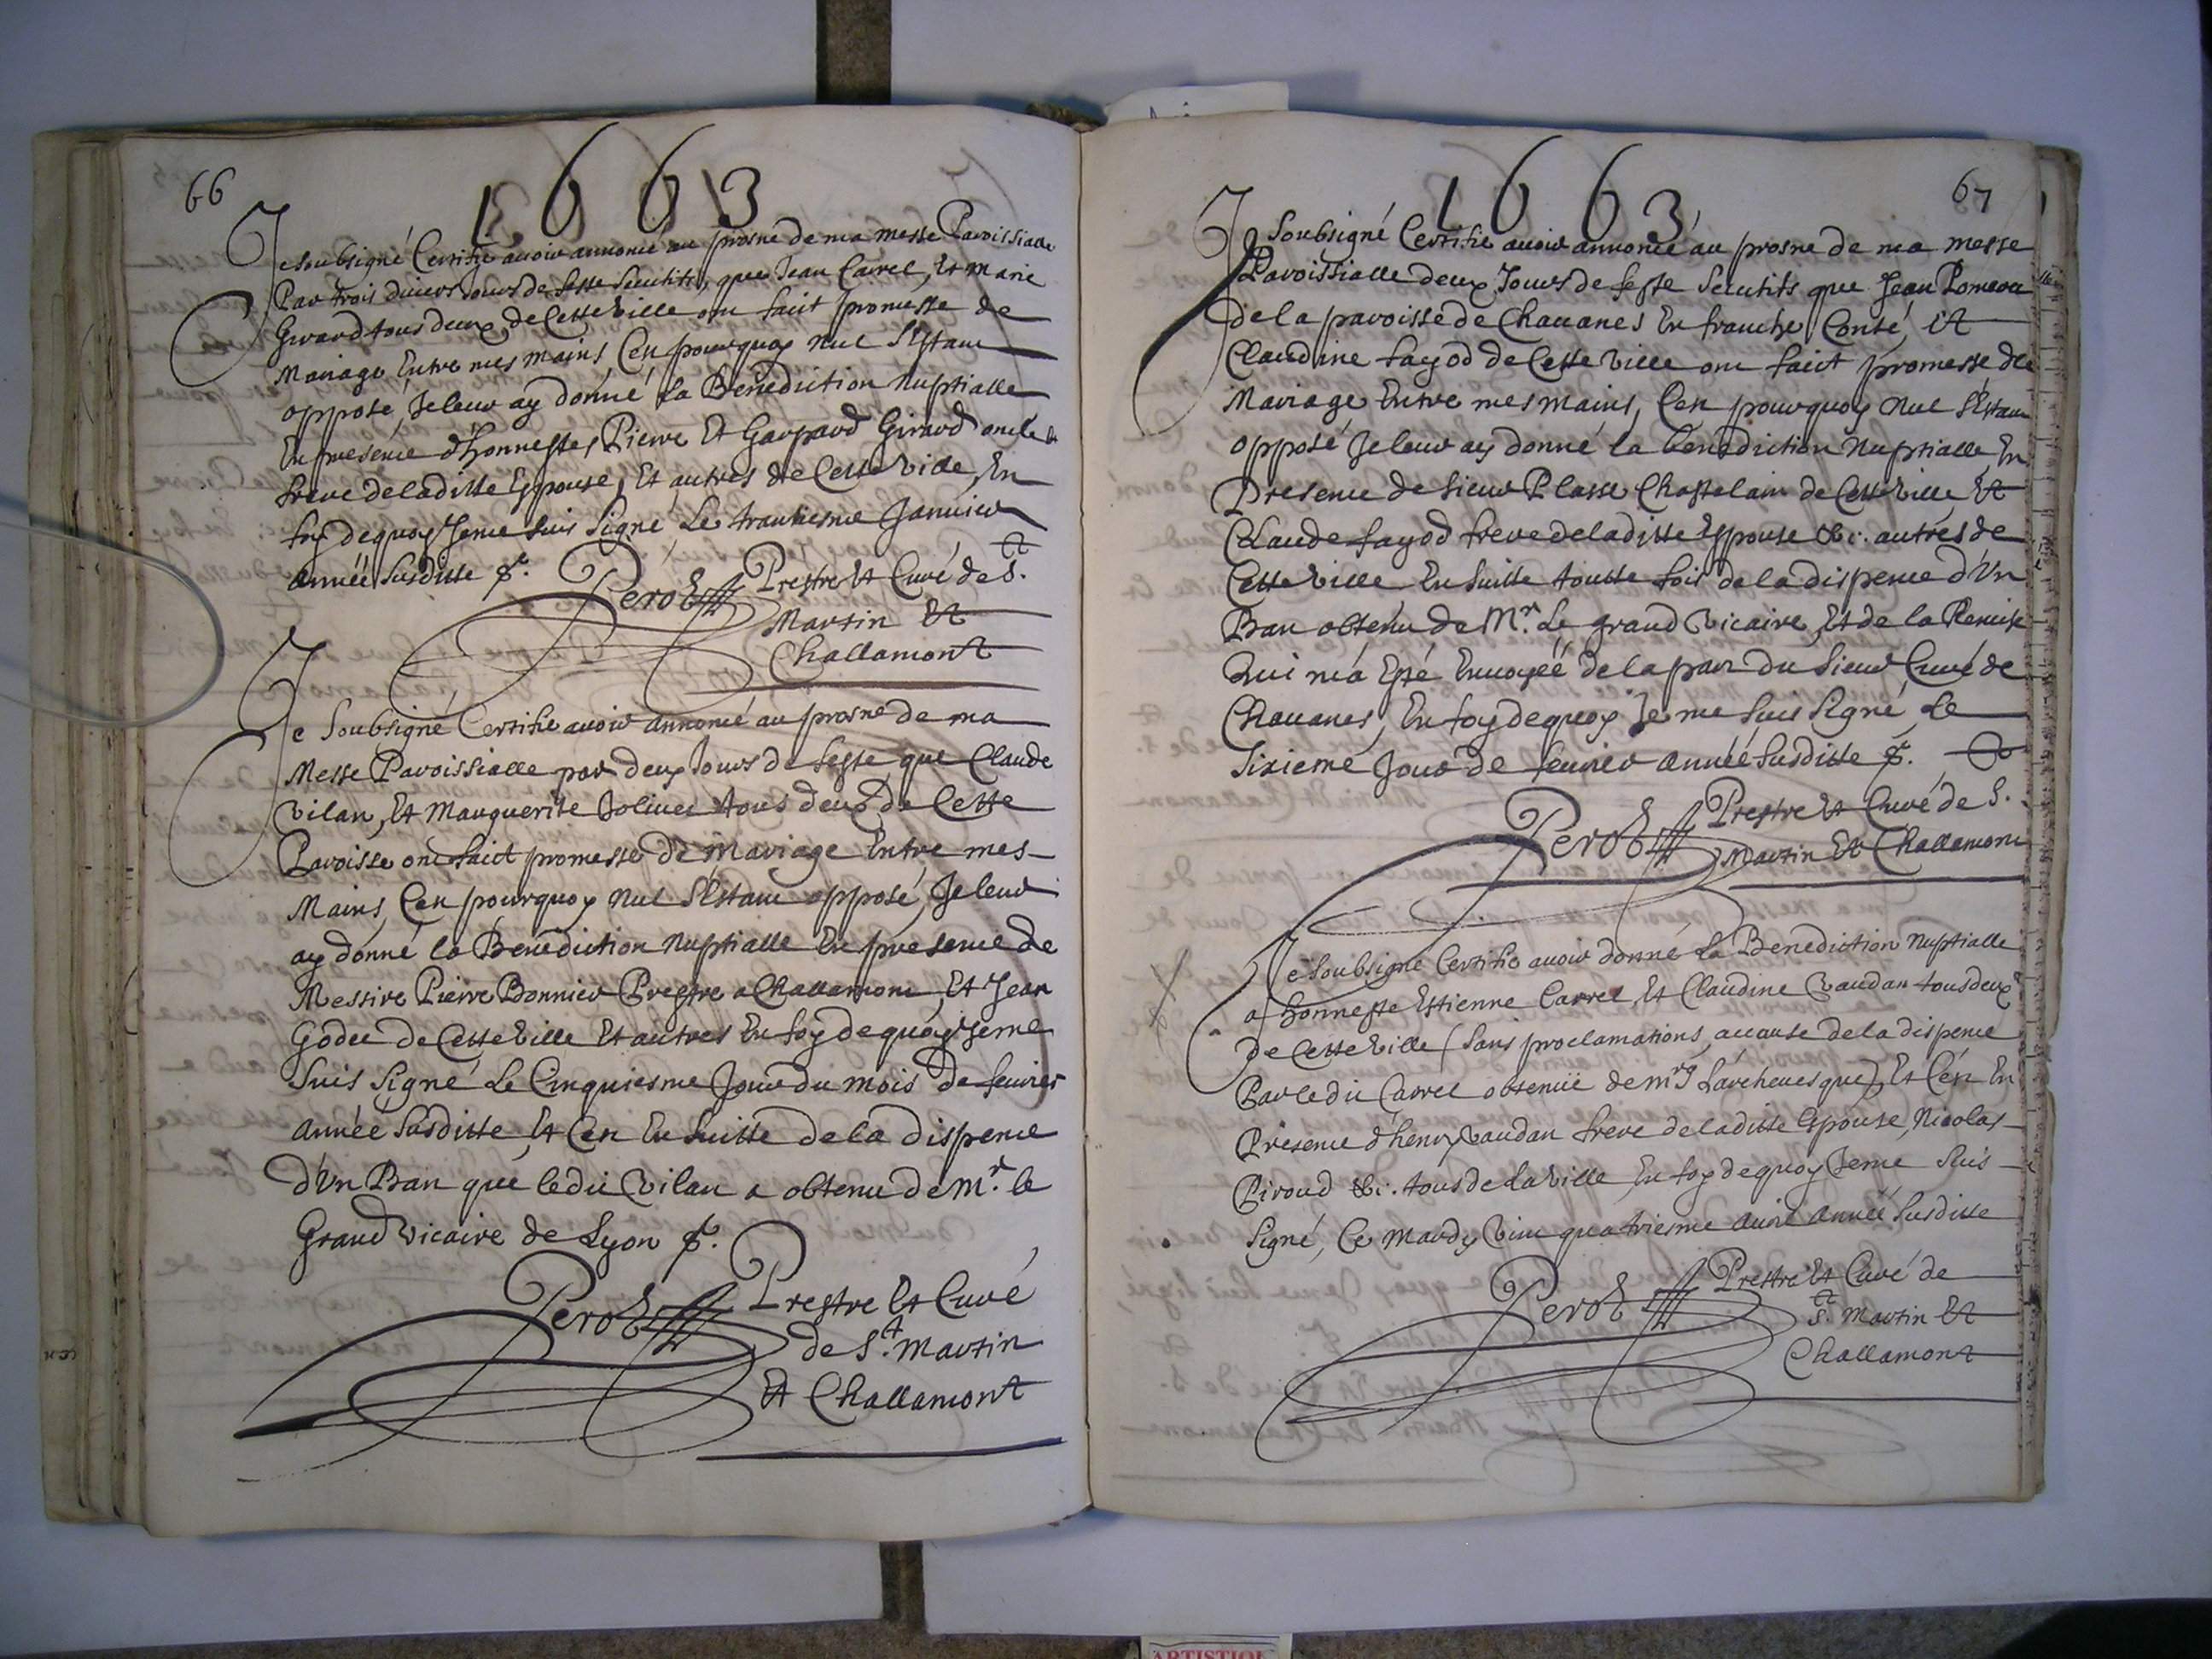 66
1663
Je soubsigné Certifie avoir annoncé au prosne de ma messe Paroissialle
Par trois divers Jours de feste secutifs, que Jean Carrel, Et marie
Girard tous deux de Cette ville ont faict promesse de
Mariage Entre mes mains, C'est pourquoy nul s'Estant
opposé, Je leur ay donné la Benediction nuptialle
En presence d'honnestes Pierre Et Gaspard Girard oncle &
frere de laditte Espouse, Et autres de Cette ville, En
foy dequoy Je me suis Signé Le trantiesme Janvier
année susditte &.
Perot Prestre Et Curé de St.
Martin Et
Challamont
Je Soubsigné Certifie avoir annoncé au prosne de ma
Messe Paroissialle par deux Jours de feste que Claude
vilan, Et Marguerite Jolivet tous deux de Cette
Paroisse ont faict promesse de Mariage Entre mes
Mains, C'est pourquoy nul s'Estant opposé, Je leur
ay donné la Benediction nuptialle En presence de
Messire Pierre Bonnier Prestre a Challamont Et Jean
Godet de Cette ville Et autres En foy de quoy Je me
suis signé Le Cinquiesme Jour du mois de fevrier
année susditte, Et C'est En suitte de la dispence
d'Un Ban que ledit vilan a obtenu de Mr. le
Grand vicaire de Lyon &.
Perot Prestre Et Curé
de St. Martin
Et Challamont
67
1663
Je Soubsigné Certifie avoir annoncé au prosne de ma messe
Paroissialle deux Jours de feste secutifs que Jean
de la paroisse de Chavanes En franche Conté, Et
Claudine fayod de Cette ville ont faict promesse de
Mariage Entre mes mains, C'est pourquoy nul s'Estant
opposé Je leur ay donné la benediction nuptialle En
Presence de sieur Plasse Chastelain de Cette ville Et
Claude fayod frere de laditte Espouse &c. autres de
Cette ville En suitte toutte fois de la dispence d'Un
Ban obtenu de Mr. Le grand vicaire, Et de la Remise
Qui m'a Esté Envoyéé de la part du sieur Curé de
Chavanes, En foy dequoy Je me suis Signé, Le
sixieme Jour de fevrier année susditte &.
Perot Prestre Et Curé de St.
Martin Et Challamont
Je Soubsigné Certifie avoir donné la Benediction nuptialle
a honneste Estienne Carrel Et Claudine vaudan tous deux
de Cette ville (sans proclamations, a cause de la dispence
Par ledit Carrel obtenüe de mrg L'archevesque) Et C'est En
Presence d'henry vaudan frere de laditte Espouse, Nicolas
Piroud &c. tous de la ville, En foy dequoy Je me suis
Signé, Ce mardy vint quatriesme avril année susditte
Perot Prestre Et Curé de
St. Martin Et
Challamont
ARTISTIQUE